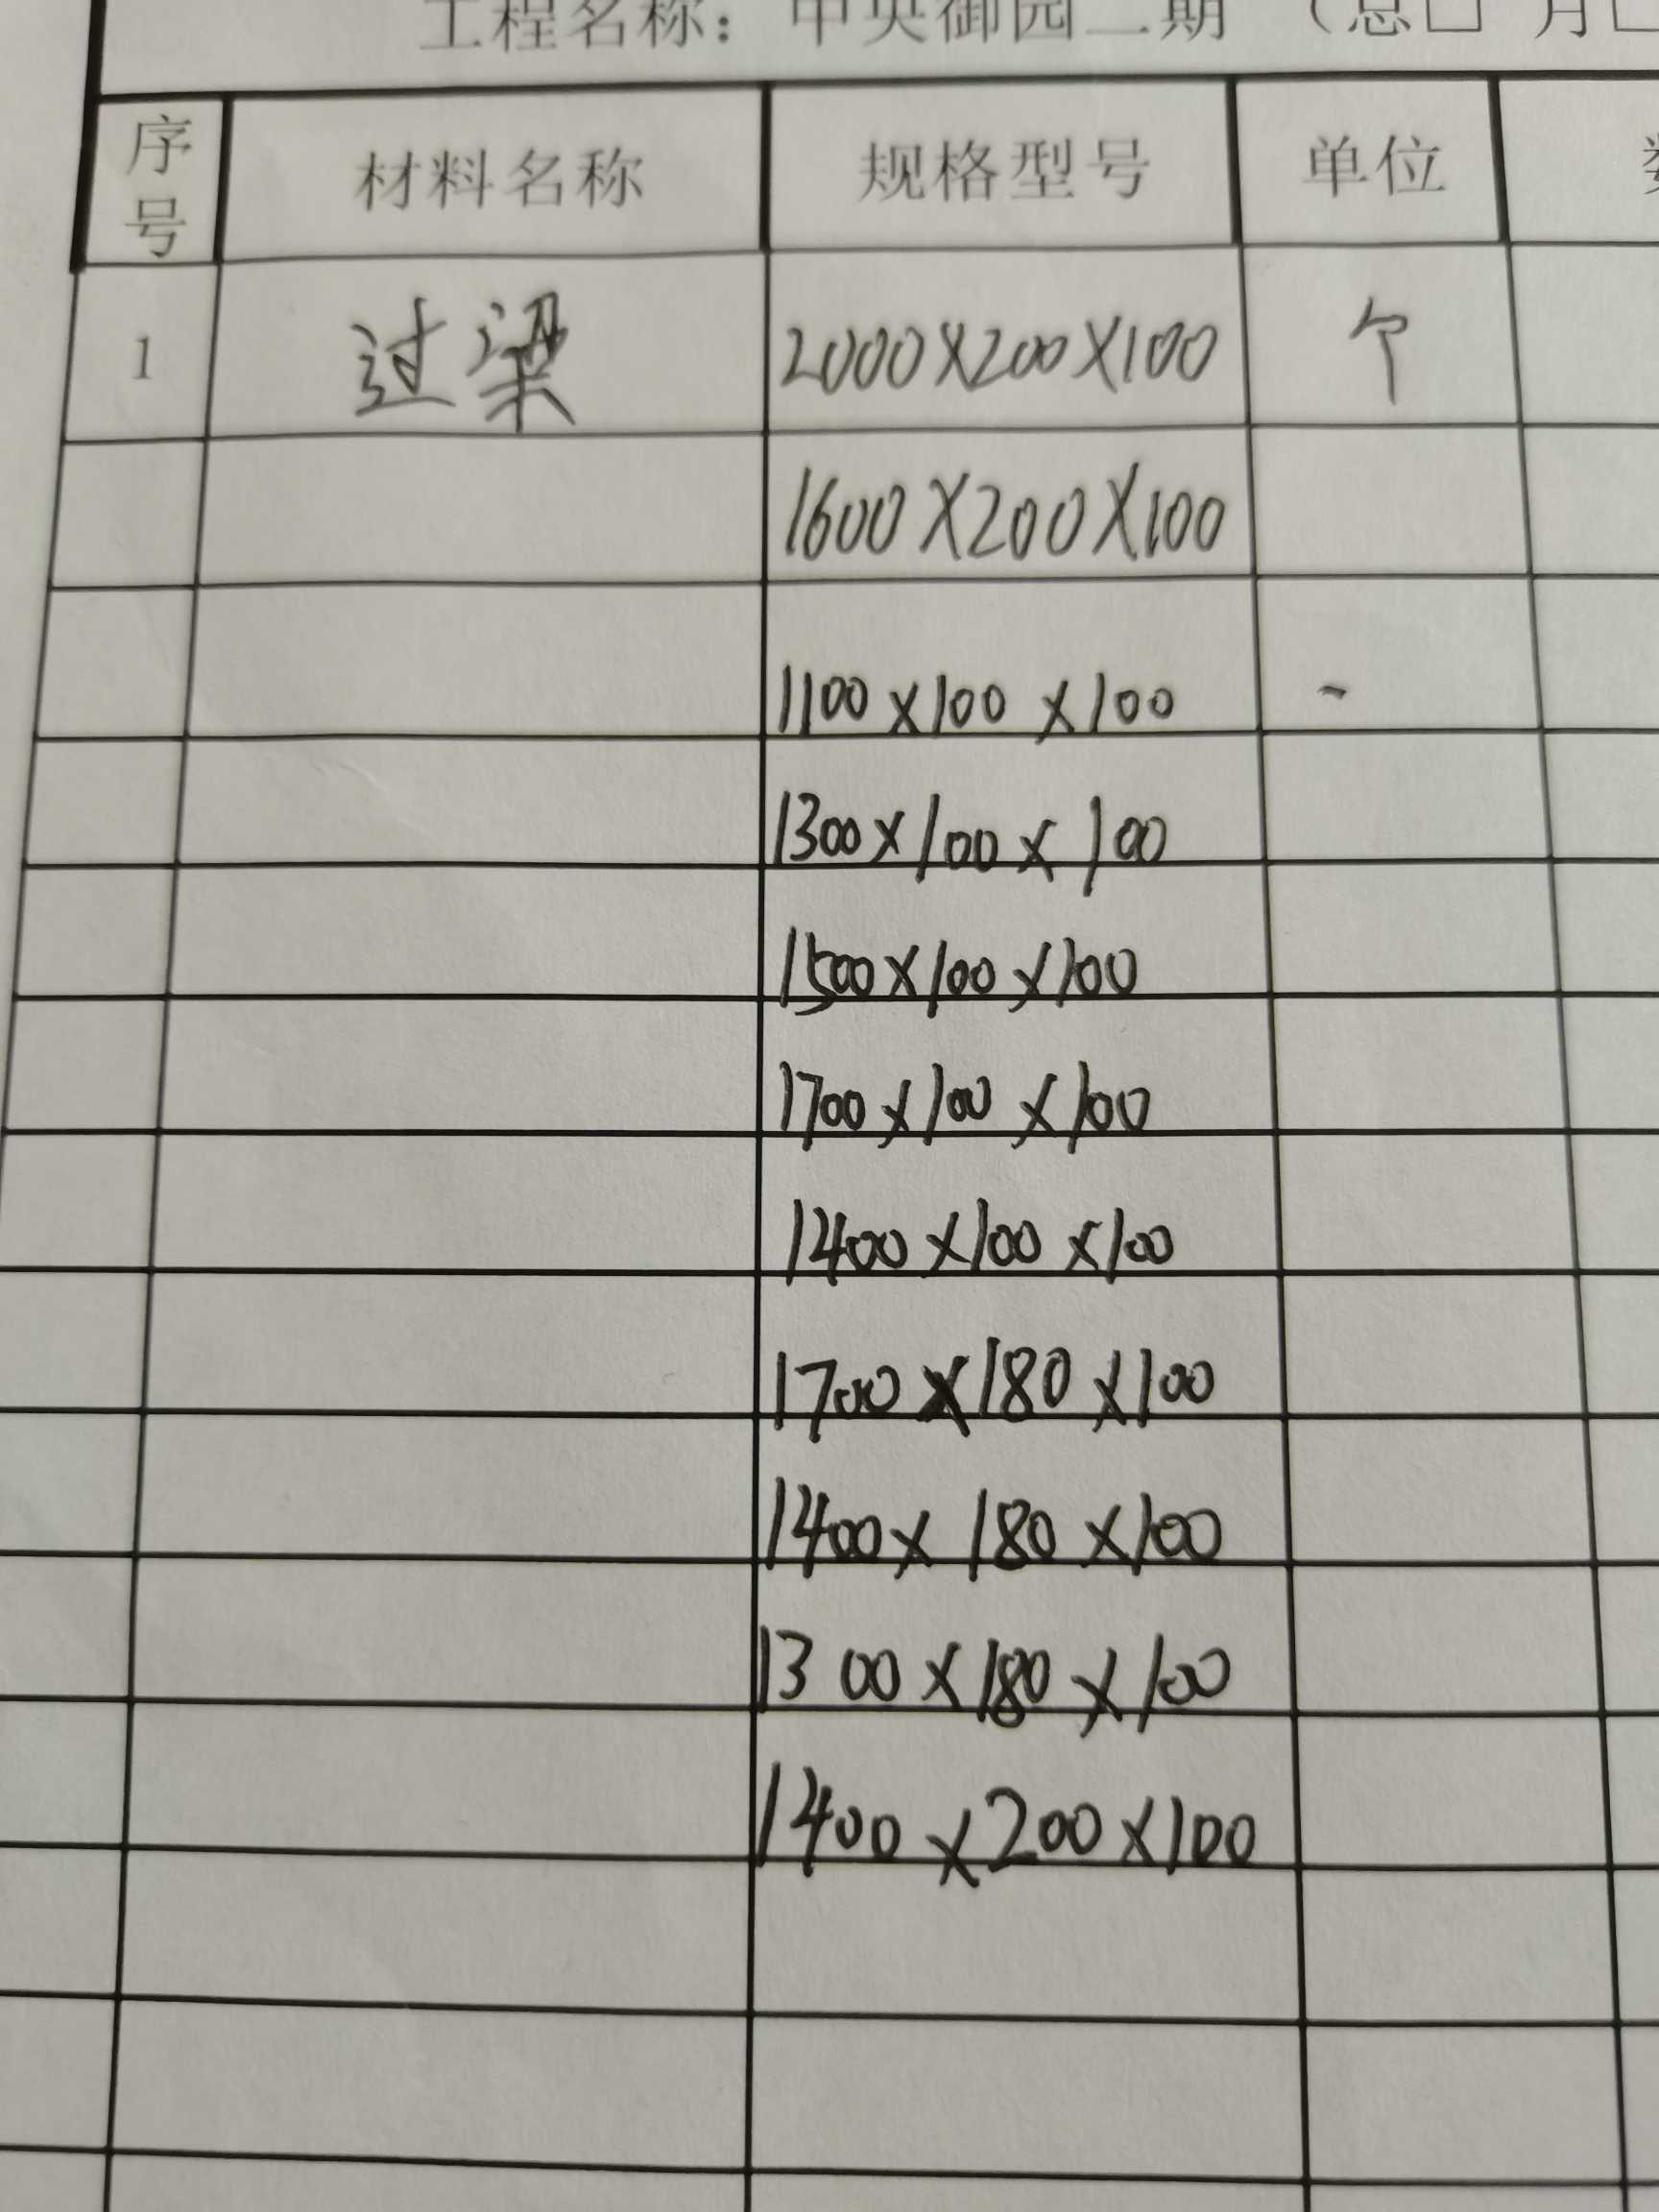 工程名称：中央御园二期 （总□ 月□
序号 材料名称 规格型号 单位
1 过梁 2000X200X100 个
1600X200X100
1100x100x100 -
1300x100x100
1500x100x100
1700x100x100
1400x100x100
1700x180x100
1400x180x100
1300x180x100
1400x200x100